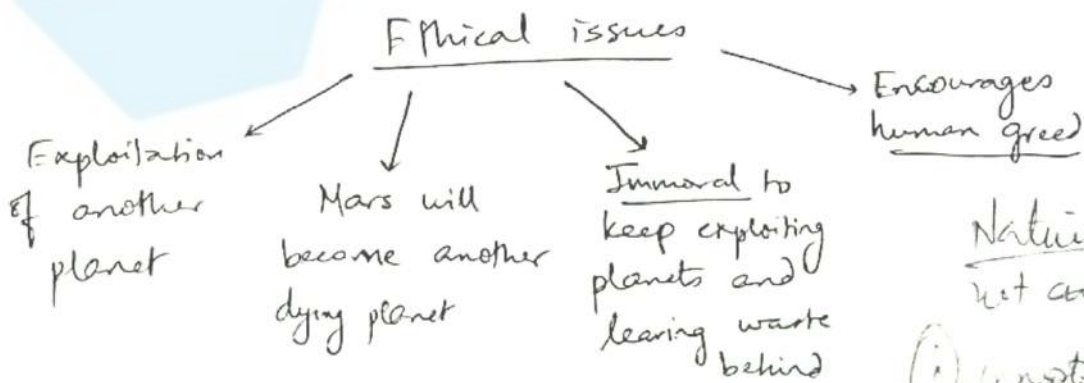 Ethical issues
Exploitation
of another
planet
Mars will
become another
dying planet
Immoral to
keep exploiting
planets and
leaving waste
behind
Encourages
human greed
not